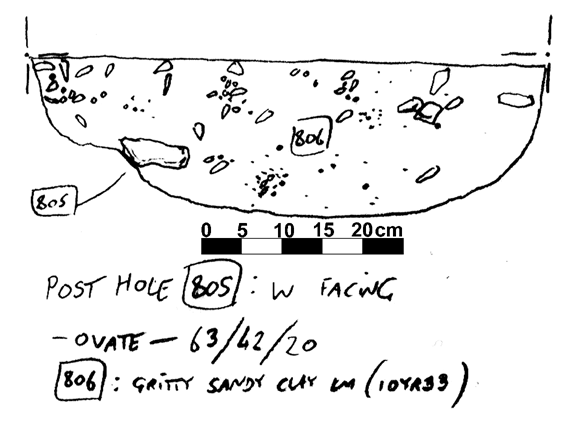 806
805
0 5 10 15 20 cm
POST HOLE 805 : W FACING
- OVATE - 63/42/20
806 : GRITTY SANDY CLAY LM (10YR33)